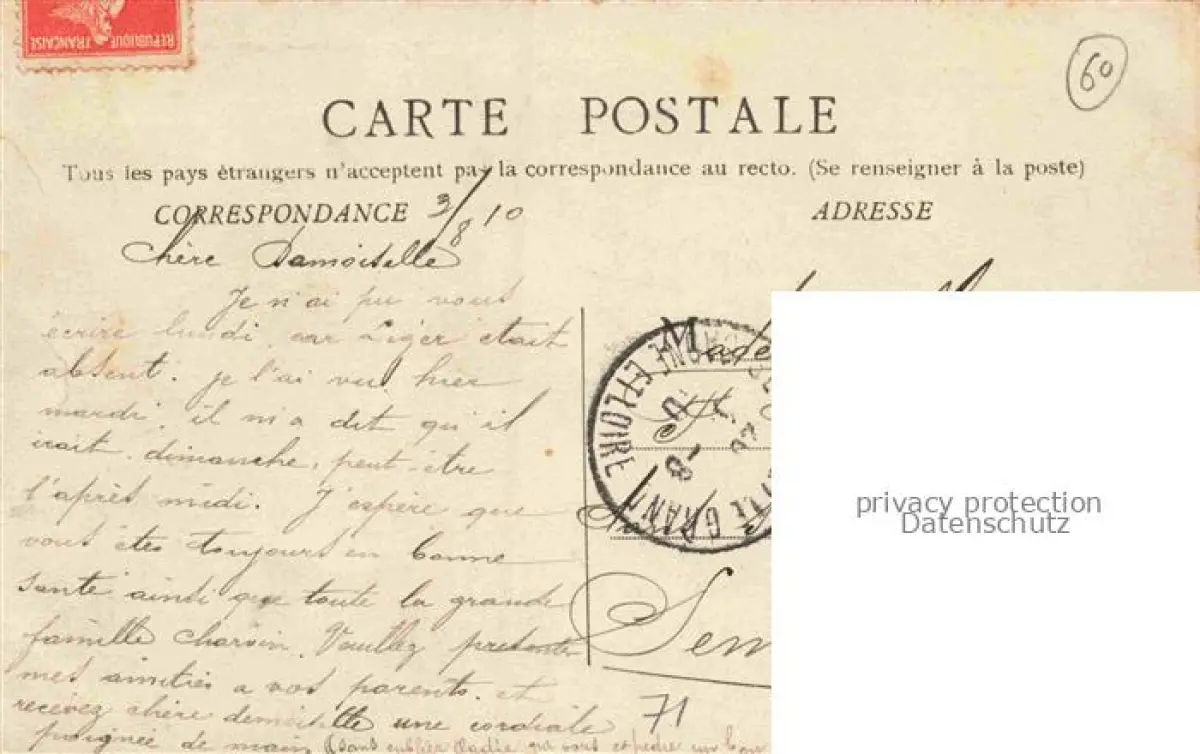 REPUBLIQUE FRANÇAISE
60
CARTE POSTALE
Tous les pays étrangers n'acceptent pas la correspondance au recto. (Se renseigner à la poste)
CORRESPONDANCE 3/8 10
ADRESSE
Chère Damoiselle
Je n'ai pu vous
écrire lundi, car Liger était
absent. je l'ai vu hier
mardi, il m'a dit qu'il
irait dimanche, peut-être
l'après midi. J'espère que
vous êtes toujours en bonne
santé ainsi que toute la grande
famille Vauillez presenter
mes amitiés a vos parents. et
recevez chère demoiselle une cordiale
poignée de main (sans oublier qui vous un bon
Made
NE ET LOIRE
8 - 10
LE GRAND
Sem
71
privacy protection
Datenschutz